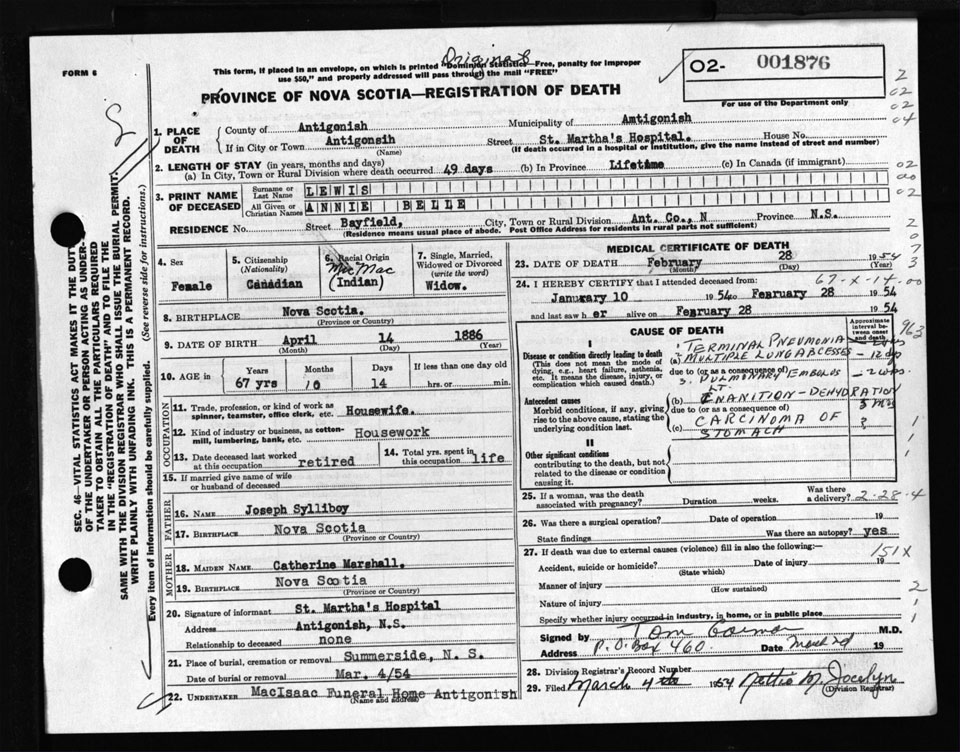 Original
FORM 6
This form, if placed in an envelope, on which is printed "Dominion Statistics—Free, penalty for improper
use $50," and properly addressed will pass through the mail "FREE"
02- 001876
For use of the Department only
PROVINCE OF NOVA SCOTIA—REGISTRATION OF DEATH
2
02
02
04
1. PLACE OF DEATH
County of Antigonish Municipality of Amtigonish
If in City or Town Antigonsih Street St. Martha's Hospital. House No.
(Name) (If death occurred in a hospital or institution, give the name instead of street and number)
2. LENGTH OF STAY (in years, months and days)
(a) In City, Town or Rural Division where death occurred 49 days (b) In Province Lifetime (c) In Canada (if immigrant)
02
3. PRINT NAME OF DECEASED
Surname or Last Name LEWIS
All Given or Christian Names ANNIE BELLE
02
RESIDENCE No. Street Bayfield, City, Town or Rural Division Ant. Co., N Province N.S.
(Residence means usual place of abode. Post Office Address for residents in rural parts not sufficient)
2
0
7
3
SEC. 46—VITAL STATISTICS ACT MAKES IT THE DUTY
OF THE UNDERTAKER OR PERSON ACTING AS UNDER-
TAKER TO OBTAIN ALL THE PARTICULARS REQUIRED
IN THE "REGISTRATION OF DEATH" AND TO FILE THE
SAME WITH THE DIVISION REGISTRAR WHO SHALL ISSUE THE BURIAL PERMIT.
WRITE PLAINLY WITH UNFADING INK. THIS IS A PERMANENT RECORD.
Every item of information should be carefully supplied. (See reverse side for instructions.)
4. Sex
Female
5. Citizenship
(Nationality)
Canadian
6. Racial Origin
Mic Mac
(Indian)
7. Single, Married,
Widowed or Divorced
(write the word)
Widow.
8. BIRTHPLACE Nova Scotia.
(Province or Country)
9. DATE OF BIRTH April 14 1886
(Month) (Day) (Year)
10. AGE in
Years Months Days If less than one day old
67 yrs 10 14 hrs. or min.
OCCUPATION
11. Trade, profession, or kind of work as
spinner, teamster, office clerk, etc. Housewife.
12. Kind of industry or business, as cotten-
mill, lumbering, bank, etc. Housework
13. Date deceased last worked
at this occupation retired
14. Total yrs. spent in
this occupation life
15. If married give name of wife
or husband of deceased
FATHER
16. NAME Joseph Sylliboy
17. BIRTHPLACE Nova Scotia
(Province or Country)
MOTHER
18. MAIDEN NAME Catherine Marshall.
19. BIRTHPLACE Nova Scotia
(Province or Country)
20. Signature of informant St. Martha's Hospital
Address Antigonish, N.S.
Relationship to deceased none
21. Place of burial, cremation or removal Summerside, N. S.
Date of burial or removal Mar. 4/54
22. UNDERTAKER MacIsaac Funeral Home Antigonish
(Name and Address)
MEDICAL CERTIFICATE OF DEATH
23. DATE OF DEATH February 28 1954
(Month) (Day) (Year)
67-X-14-00
24. I HEREBY CERTIFY that I attended deceased from
January 10 1954 to February 28 1954
and last saw her alive on February 28 1954
CAUSE OF DEATH
Approximate
interval between
onset and death
963
Disease or condition directly leading to death
(This does not mean the mode of
dying, e.g., heart failure, asthenia,
etc. It means the disease, injury, or
complication which caused death.)
Antecedent causes
Morbid conditions, if any, giving
rise to the above cause, stating the
underlying condition last.
1 TERMINAL PNEUMONIA
(a) 2 MULTIPLE LUNG ABCESSES
due to (or as a consequence of)
3. PULMONARY EMBOLUS
(b) INANITION - DEHYDRATION
due to (or as a consequence of)
(c) CARCINOMA OF
STOMACH
II
Other significant conditions
contributing to the death, but not
related to the disease or condition
causing it.
25. If a woman, was the death
associated with pregnancy? Duration weeks. Was there
a delivery? 2-28-4
26. Was there a surgical operation? Date of operation 19
State findings Was there an autopsy? yes
27. If death was due to external causes (violence) fill in also the following:
151X
Accident, suicide or homicide? Date of injury 19
(State which)
Manner of injury
(How sustained)
Nature of injury
Specify whether injury occurred in industry, in home, or in public place
Signed by Tom Gorman M.D.
Address P.O. Box 460 Date March 2nd 19
28. Division Registrar's Record Number
29. Filed March 4th 1954 Nettie M. Jocelyn
(Division Registrar)